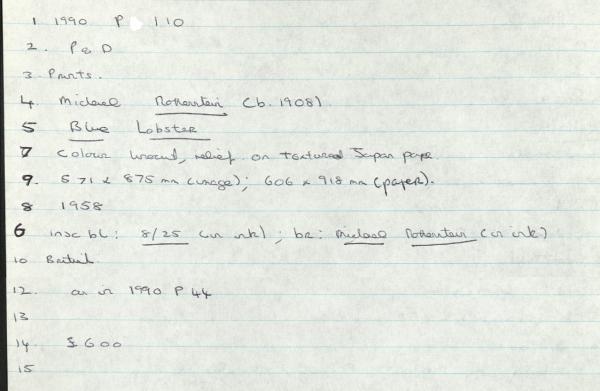 1 1990 P 110
2. P & D
3 Prints.
4. Michael Rothenstein (b. 1908)
5 Blue Lobster
7 Colour linocut, relief on textured Japan paper.
9. 571 x 875 mm (image); 606 x 918 mm (paper).
8 1958
6 insc bl: 8/25 (in ink); br: Michael Rothenstein (in ink)
10 British.
12. as in 1990 P 44
13
14. £600
15